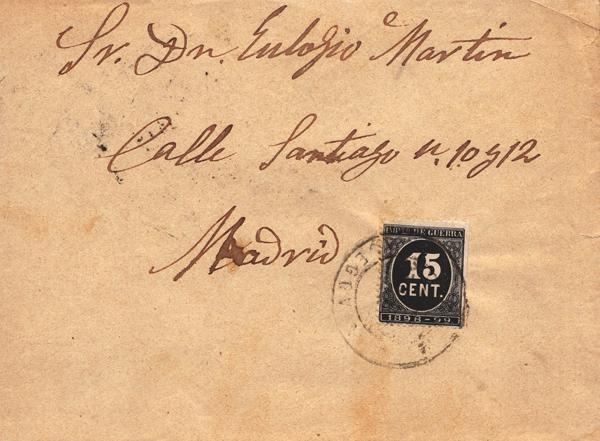 Sr. Dn. Eulogio Martin
Calle Santiago n. 10 y 12
Madrid
IMPTO DE GUERRA
15
CENT.
1898-99